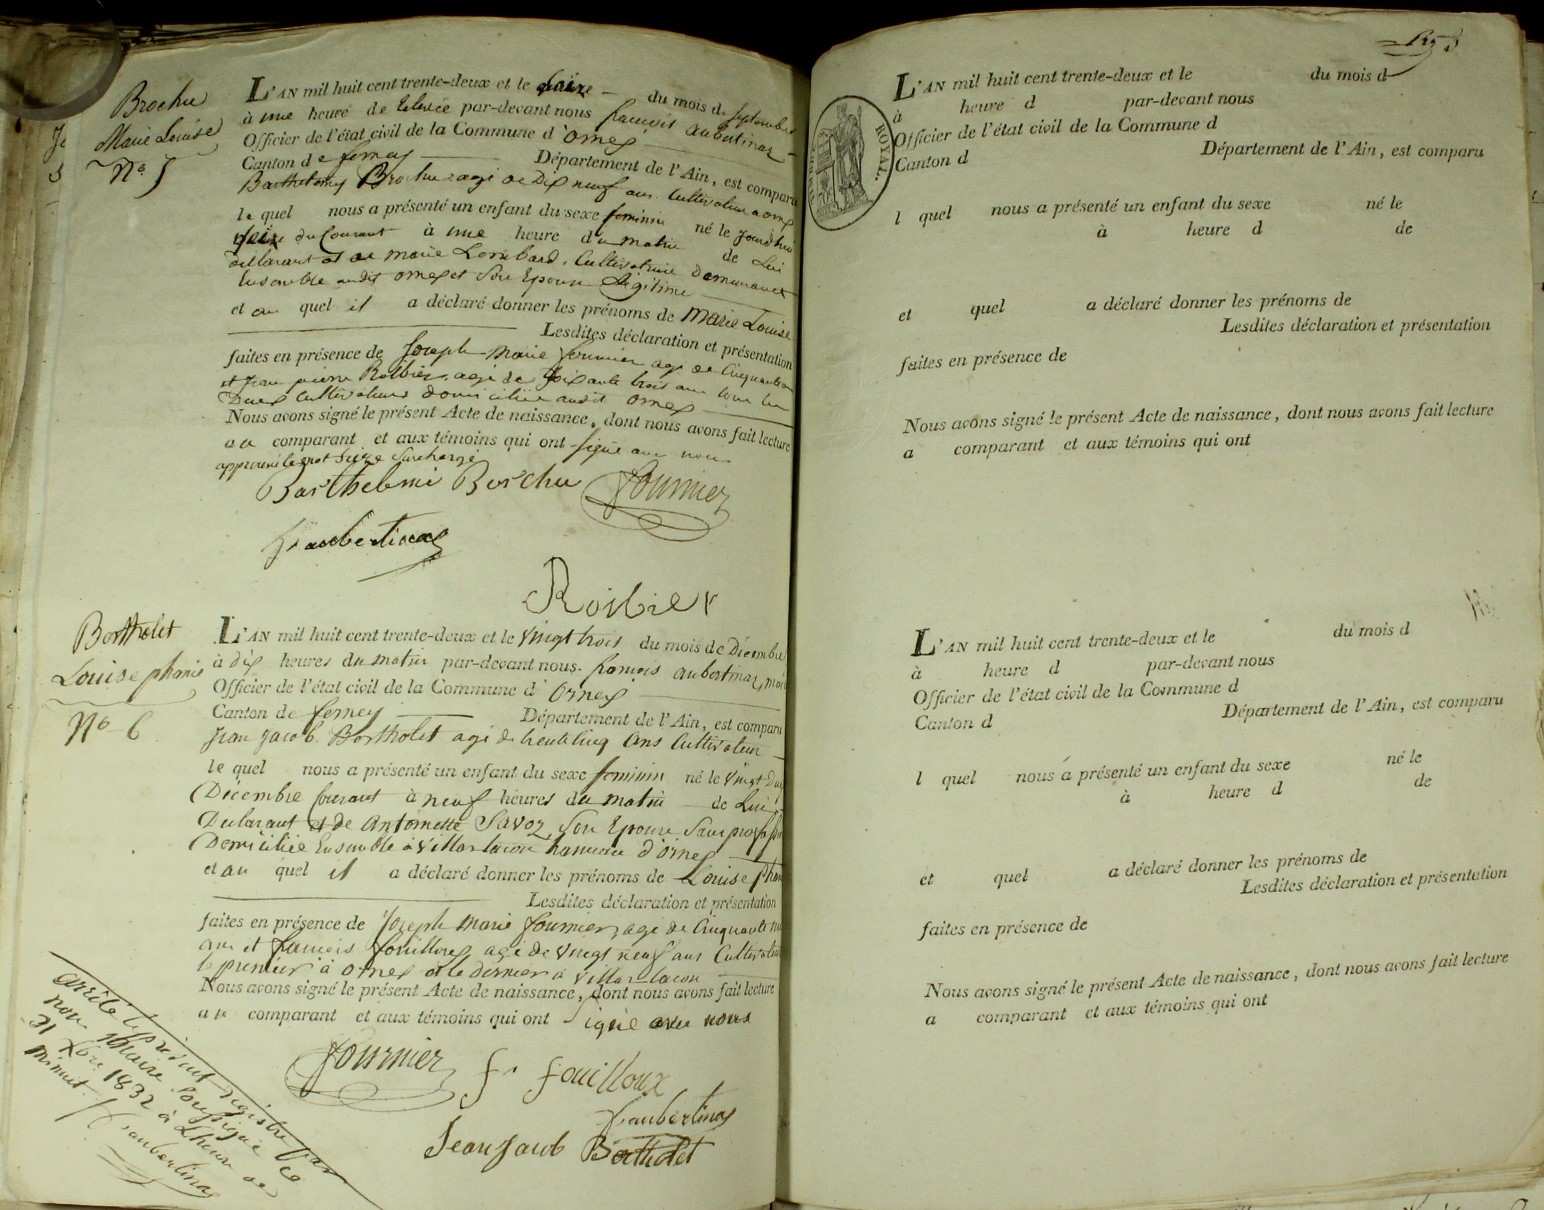 Brochu
Marie Louise
N° 5
L'AN mil huit cent trente-deux et le seize du mois de Septembre
à une heure de par-devant nous françois aubertinaz
Officier de l'état civil de la Commune d'Ornex
Canton de ferney Département de l'Ain, est comparu
Barthelemy Brochu agé de Dix neuf ans Cultivateur a ornex
le quel nous a présenté un enfant du sexe feminin né le jourdhui
seize du Courant à une heure du matin de Lui
declarant et de marie Lombard, Cultivatrice Demeurant
Ensemble audit ornex et Son Epouse Légitime
et au quel il a déclaré donner les prénoms de Marie Louise
Lesdites déclaration et présentation
faites en présence de Joseph Marie fournier agé de Cinquante
et jean pierre Roibier, agé de Soixante trois ans tous les
Deux Cultivateurs domiciliés audit ornex
Nous avons signé le présent Acte de naissance, dont nous avons fait lecture
au comparant et aux témoins qui ont signé avec nous
approuvé le mot Seize Surchargé
Barthelmi Borchu fournier
f. aubertinaz
Roibier
Bertholet
Louise phanie
N° 6
L'AN mil huit cent trente-deux et le vingt trois du mois de Décembre
à dix heures du matin par-devant nous françois aubertinaz, maire
Officier de l'état civil de la Commune d'Ornex
Canton de ferney Département de l'Ain, est comparu
Jean Jacob Bertholet agé de trente cinq ans Cultivateur
le quel nous a présenté un enfant du sexe feminin né le vingt Deux
Décembre Courant à neuf heures du matin de Lui
Declarant et de Antoinette Savoz, Son Epouse Sans profession
Domiciliée Ensemble à Villar tacon hameau d'Ornex
et au quel il a déclaré donner les prénoms de Louise phanie
Lesdites déclaration et présentation
faites en présence de Joseph Marie fournier, agé de Cinquante
ans et francois fouilloux agé de vingt neuf ans Cultivateurs
le premier à Ornex et le dernier à Villar tacon
Nous avons signé le présent Acte de naissance, dont nous avons fait lecture
au comparant et aux témoins qui ont Signé avec nous
fournier f. fouilloux
f aubertinaz
Jean Jacob Bertholet
arrêté le présent registre par
nous Maire Soussigné Ce
31 Xbre 1832 à L'heure de
minuit.
f aubertinaz
L'AN mil huit cent trente-deux et le du mois d
à heure d par-devant nous
Officier de l'état civil de la Commune d
Canton d Département de l'Ain, est comparu
ROYAL.
l quel nous a présenté un enfant du sexe né le
à heure d de
et quel a déclaré donner les prénoms de
Lesdites déclaration et présentation
faites en présence de
Nous avons signé le présent Acte de naissance, dont nous avons fait lecture
a comparant et aux témoins qui ont
L'AN mil huit cent trente-deux et le du mois d
à heure d par-devant nous
Officier de l'état civil de la Commune d
Canton d Département de l'Ain, est comparu
l quel nous a présenté un enfant du sexe né le
à heure d de
et quel a déclaré donner les prénoms de
Lesdites déclaration et présentation
faites en présence de
Nous avons signé le présent Acte de naissance, dont nous avons fait lecture
a comparant et aux témoins qui ont